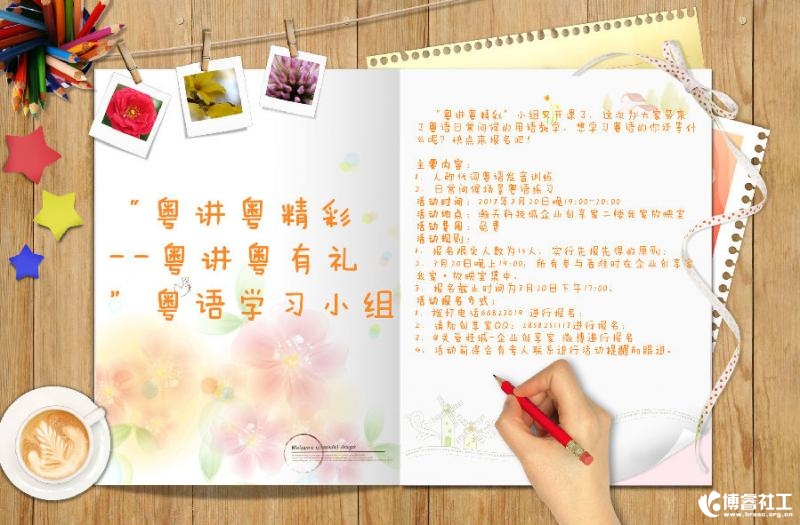 “粤讲粤精彩
--粤讲粤有礼
”粤语学习小组
“粤讲粤精彩”小组又开课了，这次为大家带来
了粤语日常问候的用语教学，想学习粤语的你还等什
么呢？快点来报名吧！
主要内容：
1、人称代词粤语发音训练
2、日常问候场景粤语练习
活动时间：2013年3月20日晚19:00-20:00
活动地点：瀚天科技城企业创享家二楼我家放映室
活动费用：免费
活动规则：
1、报名限定人数为15人，实行先报先得的原则；
2、3月20日晚上19:00，所有参与者准时在企业创享家
我家·放映室集中。
3、报名截止时间为3月20日下午17:00。
活动报名方式：
1、拨打电话66823019 进行报名；
2、请加创享家QQ：2858251113进行报名；
3、@关爱桂城-企业创享家 微博进行报名
4、活动前将会有专人联系进行活动提醒和跟进。
博睿社工
www.brssc.org.cn